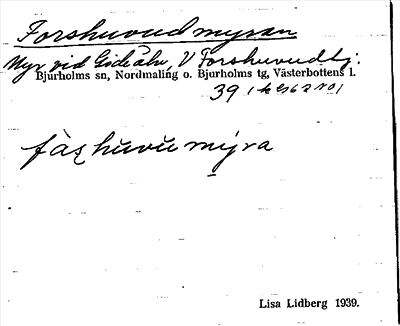 Forshuvudmyran
Myr vid Gideälv, V Forshuvudbj.
Bjurholms sn, Nordmaling o. Bjurholms tg, Västerbottens l.
39
fàʂhŭvŭmýra
Lisa Lidberg 1939.